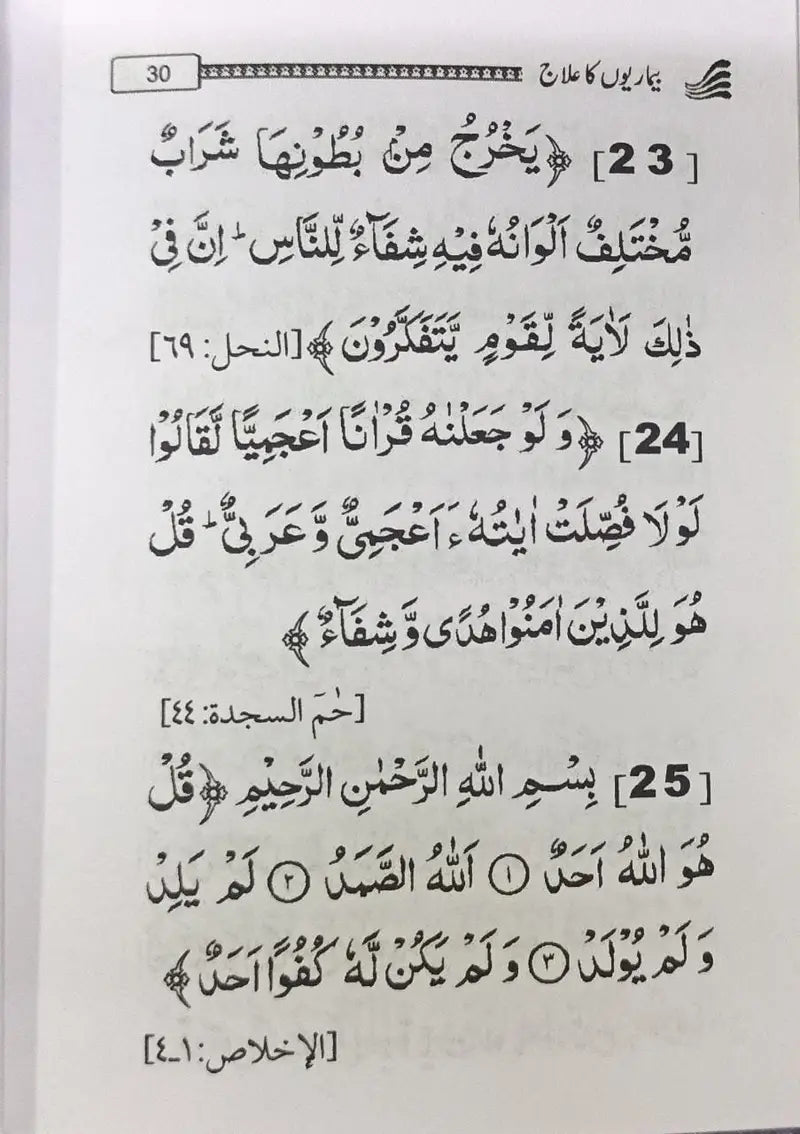 بیماریوں کا علاج 30
[23] ﴿يَخْرُجُ مِنْۢ بُطُوْنِهَا شَرَابٌ
مُّخْتَلِفٌ اَلْوَانُهٗ فِيْهِ شِفَآءٌ لِّلنَّاسِ ؕ اِنَّ فِيْ
ذٰلِكَ لَاٰيَةً لِّقَوْمٍ يَّتَفَكَّرُوْنَ﴾ [النحل: ٦٩]
[24] ﴿وَ لَوْ جَعَلْنٰهُ قُرْاٰنًا اَعْجَمِيًّا لَّقَالُوْا
لَوْ لَا فُصِّلَتْ اٰيٰتُهٗ ءَاَعْجَمِيٌّ وَّ عَرَبِيٌّ ؕ قُلْ
هُوَ لِلَّذِيْنَ اٰمَنُوْا هُدًى وَّ شِفَآءٌ﴾
[حٰمٓ السجدة: ٤٤]
[25] بِسْمِ اللّٰهِ الرَّحْمٰنِ الرَّحِيْمِ ﴿قُلْ
هُوَ اللّٰهُ اَحَدٌ ① اَللّٰهُ الصَّمَدُ ② لَمْ يَلِدْ
وَ لَمْ يُوْلَدْ ③ وَ لَمْ يَكُنْ لَّهٗ كُفُوًا اَحَدٌ﴾
[الإخلاص: ١ـ٤]